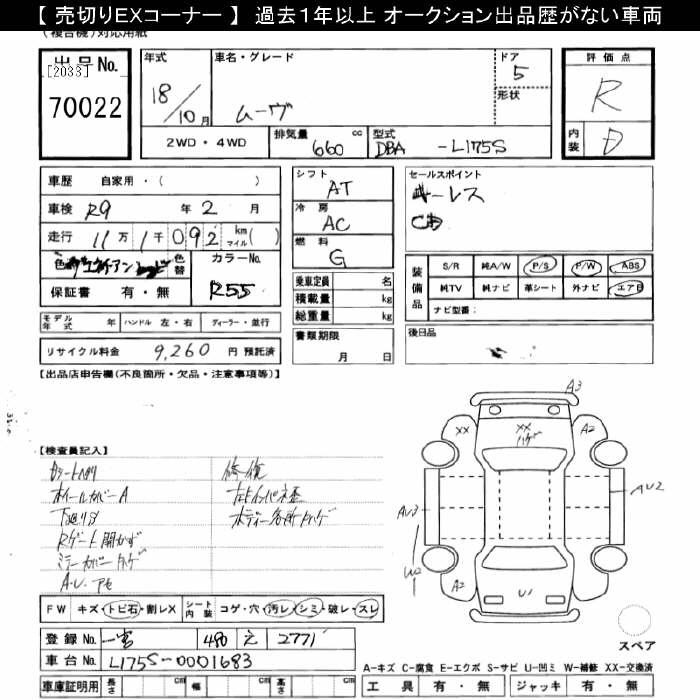 【 売切りEXコーナー 】 過去１年以上 オークション出品歴がない車両
(複合機)対応用紙
出品No.
[2033]
70022
年式
18/10月
車名・グレード
ムーヴ
ドア
5
形状
2WD・4WD
排気量
660 cc
型式
DBA -L175S
評価点
R
内装
D
車歴 自家用・( )
車検 R9 年 2 月
走行 11万 1千 092 km マイル( )
色 色替
カラーNo.
R55
保証書 有・無
モデル年式 年 ハンドル 左・右 ディーラー・並行
リサイクル料金 9,260 円 預託済
シフト
AT
冷房
AC
燃料
G
乗車定員 名
積載量 kg
総重量 kg
書類期限
月 日
セールスポイント
キーレス
CD
装備品
S/R 純A/W P/S P/W ABS
純TV 純ナビ 革シート 外ナビ エアB
ナビ型番:
後日品
【出品店申告欄(不良箇所・欠品・注意事項等)】
【検査員記入】
ホイールカバーA
下廻りサビ
Rゲート開かず
A.U. アセ
修復
FW キズ・トビ石・割レX シート内装 コゲ・穴・汚レ・シミ・破レ・スレ
登録No. 一宮 480 え 2771
車台No. L175S-0001683
車庫証明用 長さ cm 幅 cm 高さ cm
A3
XX
XX
ハゲ
A2
AU3
AU2
A2
U1
スペア
A-キズ C-腐食 E-エクボ S-サビ U-凹ミ W-補修 XX-交換済
工具 有・無 ジャッキ 有・無